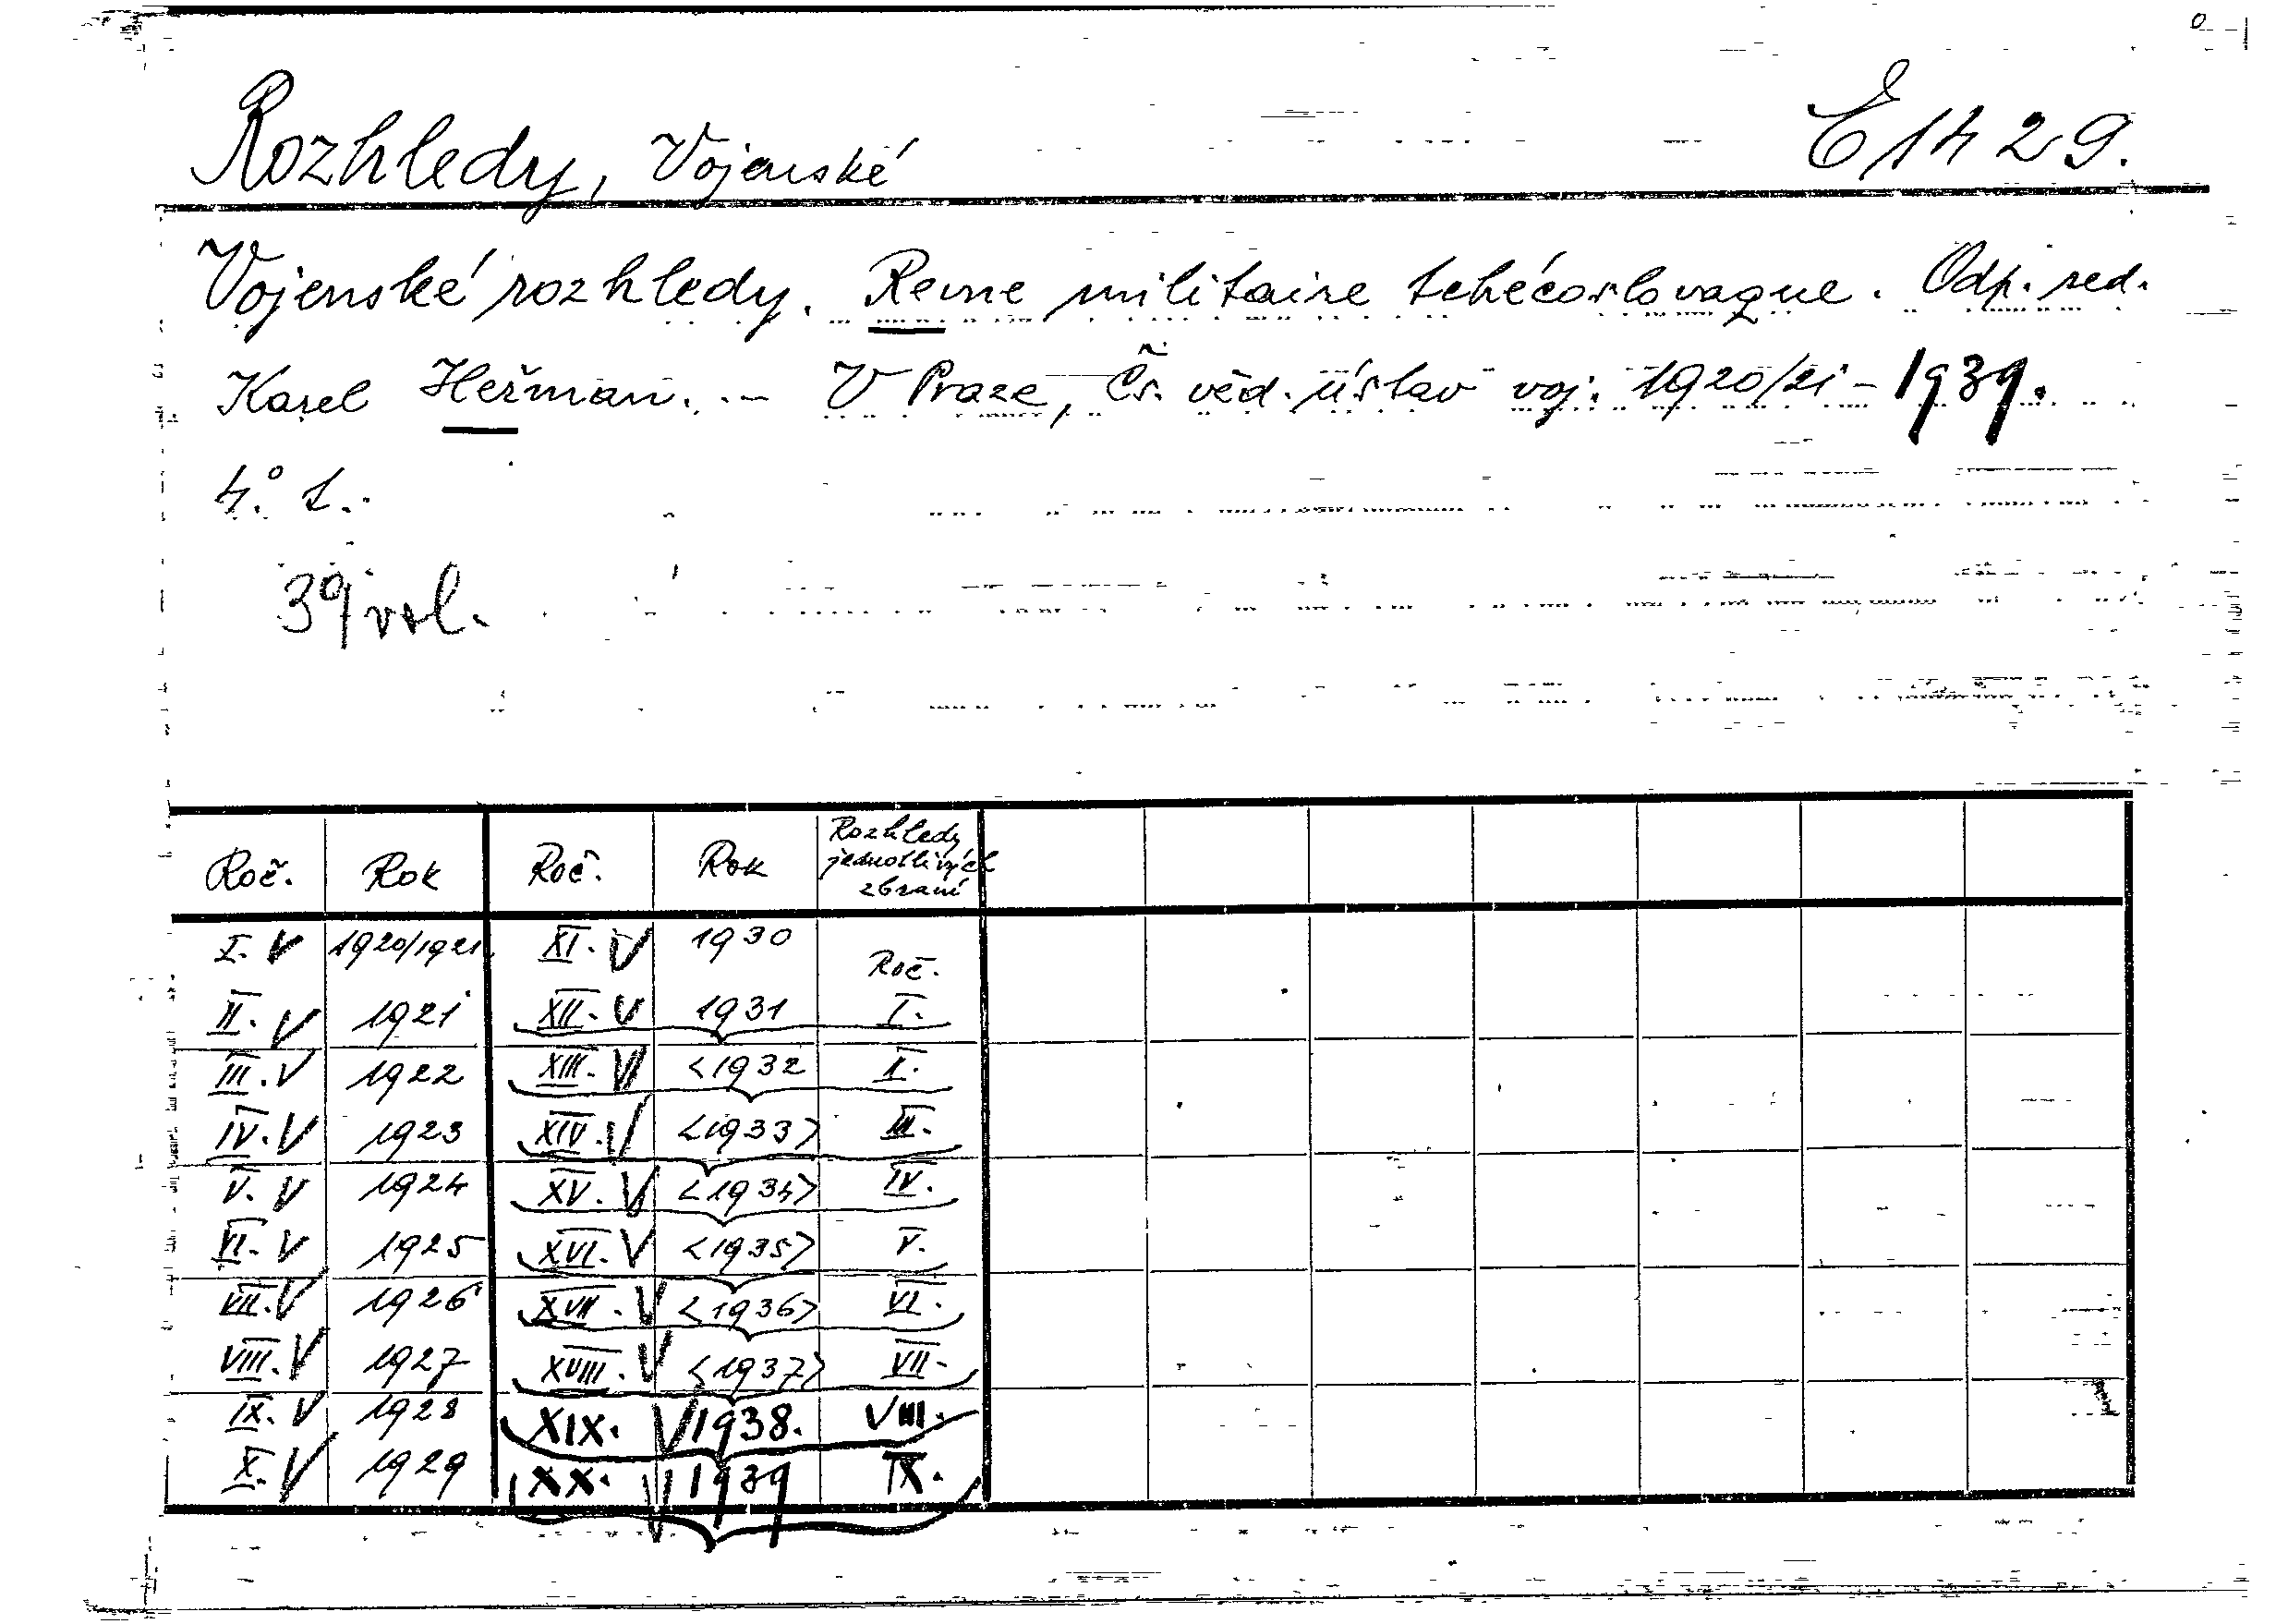 Rozhledy, Vojenské E 1429.
Vojenské rozhledy. Revue militaire tchécoslovaque. Odp. red.
Karel Heřman. - V Praze, Čs. věd. ústav voj. 1920/21 - 1939.
4.°
39 vol.
Roč. Rok Roč. Rok Rozhledy jednotlivých zbraní
I. V 1920/1921 XI. V 1930 Roč.
II. V 1921 XII. V 1931 I.
III. V 1922 XIII. V <1932 I.
IV. V 1923 XIV. V <1933> III.
V. V 1924 XV. V <1934> IV.
VI. V 1925 XVI. V <1935> V.
VII. V 1926 XVII. V <1936> VI.
VIII. V 1927 XVIII. V <1937> VII.
IX. V 1928 XIX. V 1938. VIII.
X. V 1929 XX. V 1939 IX.